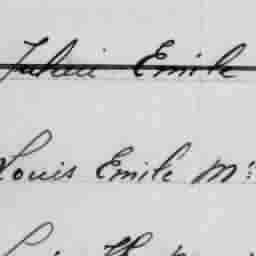 Julien Emile
Louis Emile M: